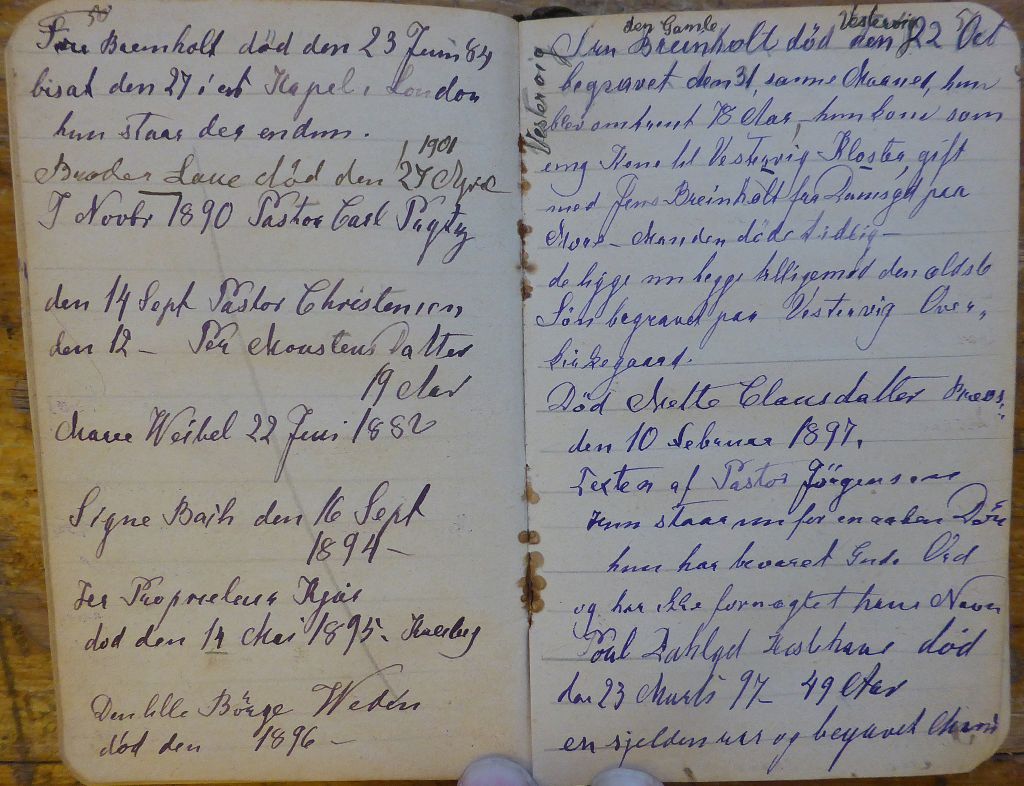 50
Fru Breinholt død den 23 Juni 84
bisat den 27 i et Kapel i London
hun staar der endnu.
1901
Broder Laue død den 27
I Novbr 1890 Pastor Carl
den 14 Sept Pastor Christensen
den 12 — Per Moustens Datter
19 Aar
Marie Weibel 22 Juni 1882
Signe Bach den 16 Sept
1894 —
Proprietær Kjær
død den 14 Mai 1895.
Den lille Börge
død den 1896 —
den Gamle Vestervig
Vestervig
Fru Breinholt død den 22 Oct
begravet den 31, samme Maaned, hun
blev omtrent 78 Aar, hun kom som
ung Kone til Vestervig-Kloster, gift
med Jens Breinholt fra paa
Mors — Manden døde tidlig —
de ligge nu begge tilligemed den ældste
Søn begravet paa Vestervig Over„
kirkegaard.
Død Mette Clausdatter
den 10 Februar 1897.
Texten af Pastor Jörgensen
Hun staar nu for en aaben Dör
hun har bevaret Guds Ord
og har ikke fornægtet hans Navn
Poul død
den 23 Marts 97 49 Aar
en sjelden rar og begavet Mand